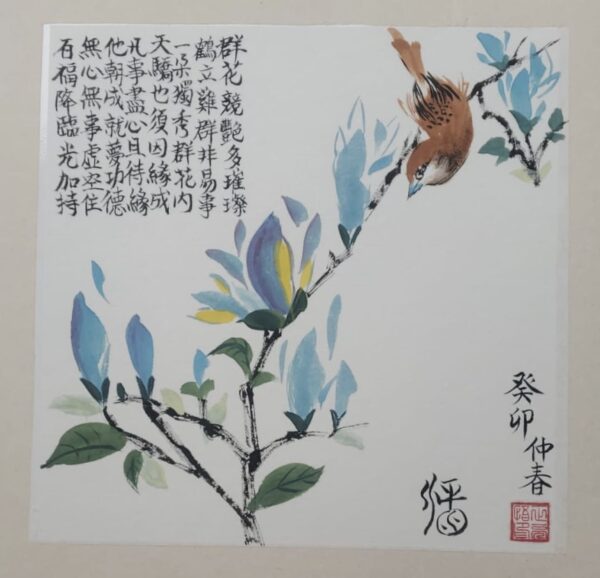 群花競艷多璀璨
鶴立雞群非易事
一朵獨秀群花內
天驕也須因緣成
凡事盡心且待緣
他朝成就夢功德
無心無事虛空住
百福降臨光加持
癸卯仲春